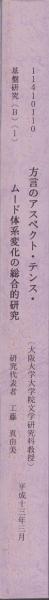 11410110
基盤研究(B)(1)
方言のアスペクト・テンス・
ムード体系変化の総合的研究
(大阪大学大学院文学研究科教授)
研究代表者 工藤 真由美
平成十三年三月